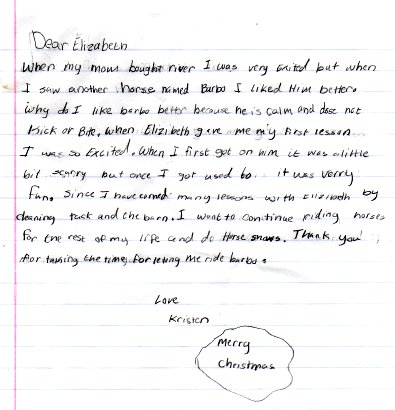 Dear Elizabeth
When my mom bought river I was very exited but when
I saw another horse named Barbo I liked Him better.
Why do I like barbo bettr because he is calm and dose not
Kick or Bite. When Elizibeth give me my first lesson
I was so Excited. When I first got on him it was a little
bit scarry but once I got used to. it was verry
Fun. Since I have earned many lessons with Elizibeth by
cleaning tack and the barn. I want to continue riding horses
for the rest of my life and do Horse shows. Thank you
for taking the time, for leting me ride barbo.
Love
Kristen
Merry
Christmas